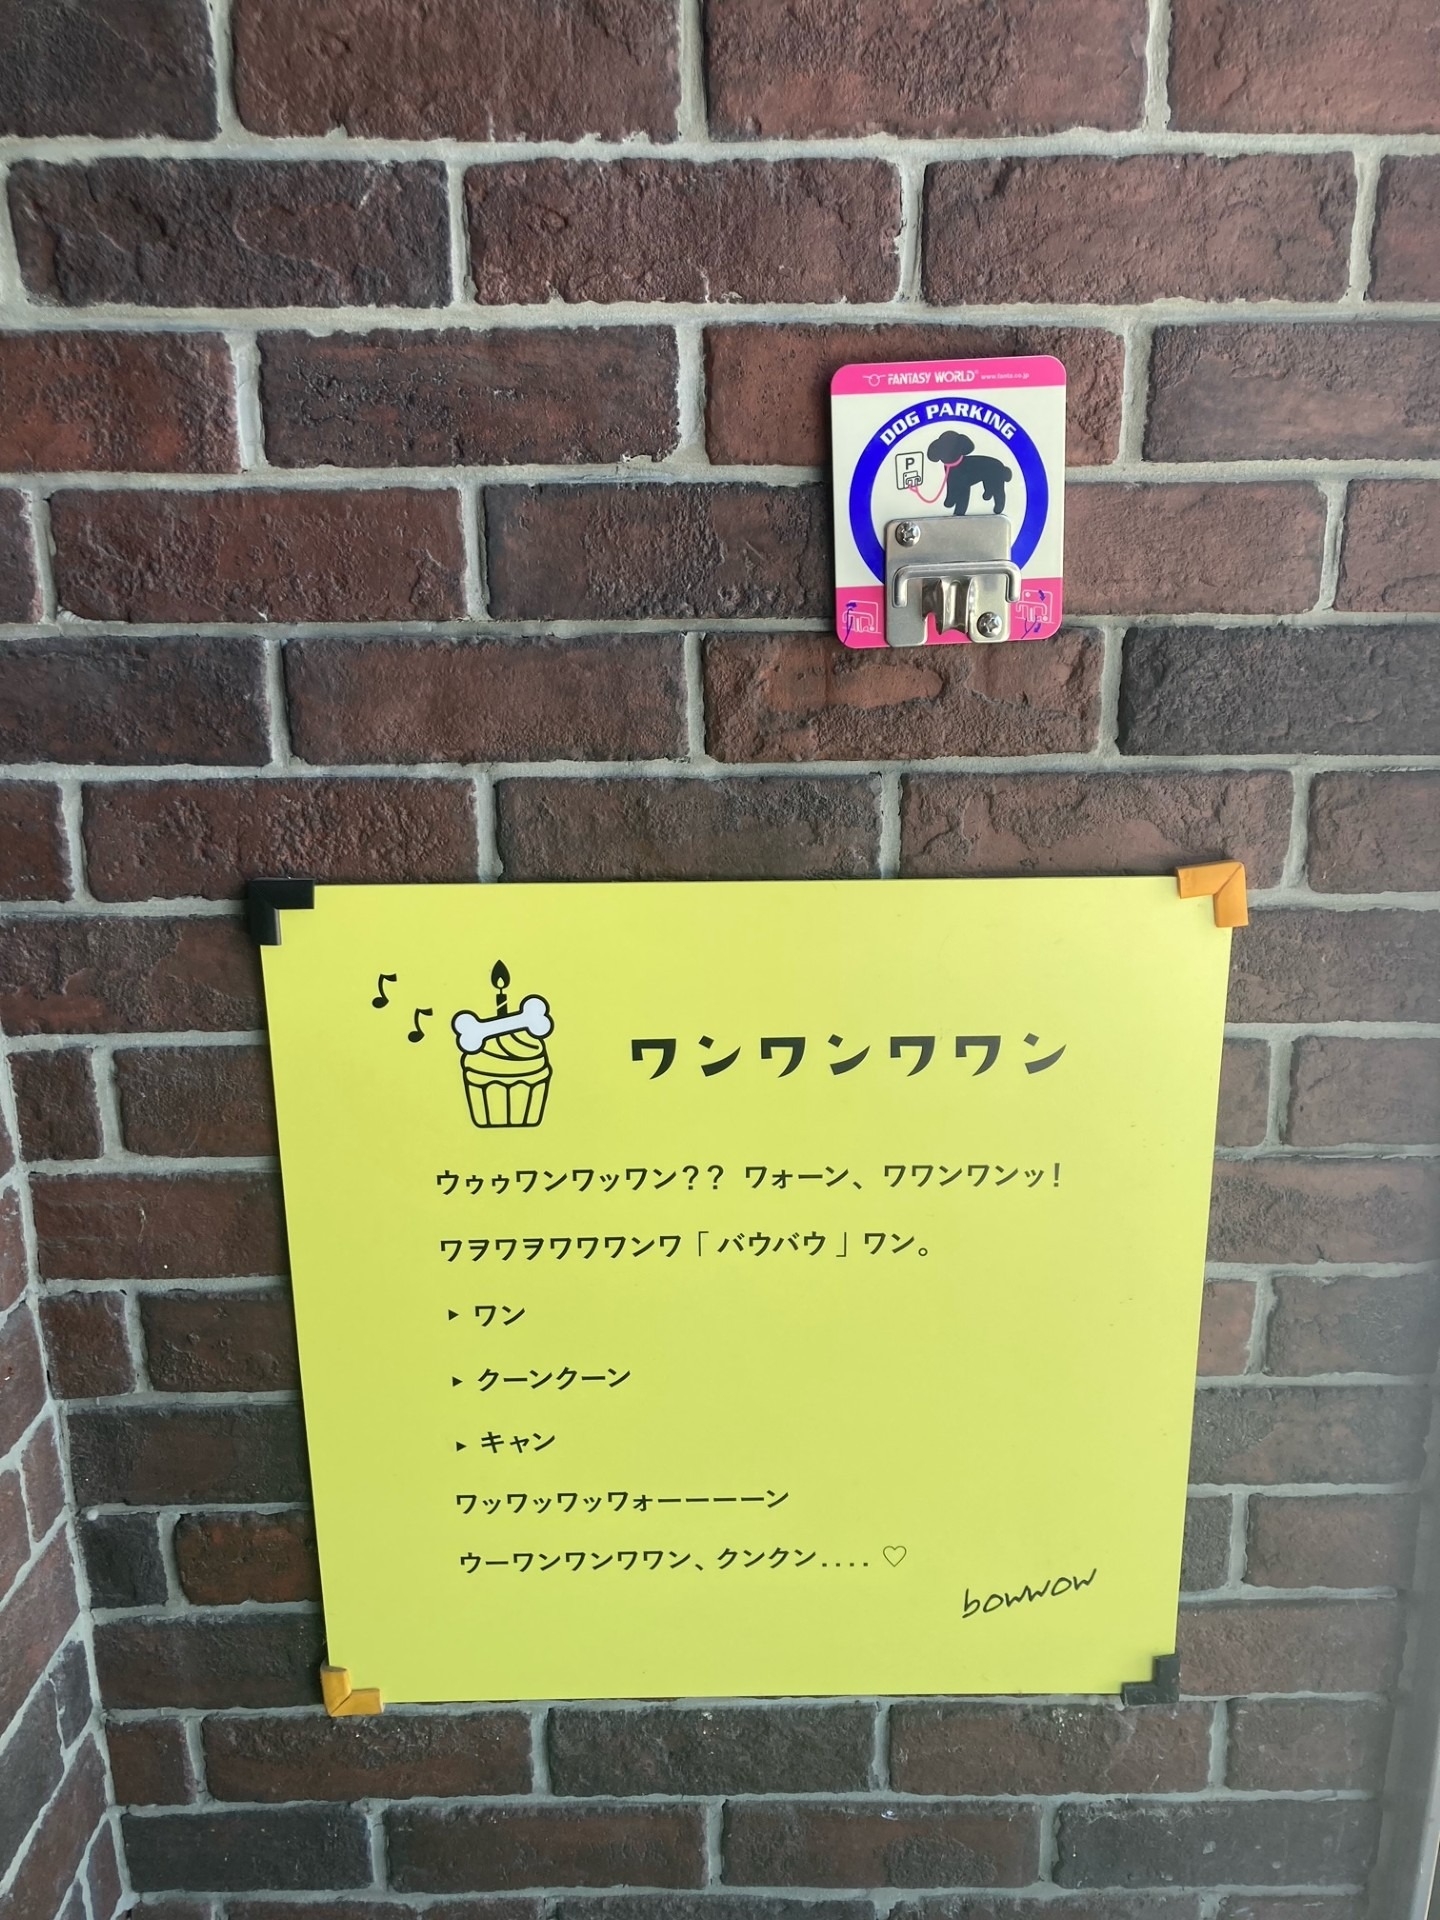 FANTASY WORLD® www.fanta.co.jp
DOG PARKING
P
ワンワンワワン
ウゥゥワンワッワン？？ ワォーン、ワワンワンッ！
ワヲワヲワワワンワ「バウバウ」ワン。
▸ ワン
▸ クーンクーン
▸ キャン
ワッワッワッワォーーーーン
ウーワンワンワワン、クンクン.... ♡
bowwow